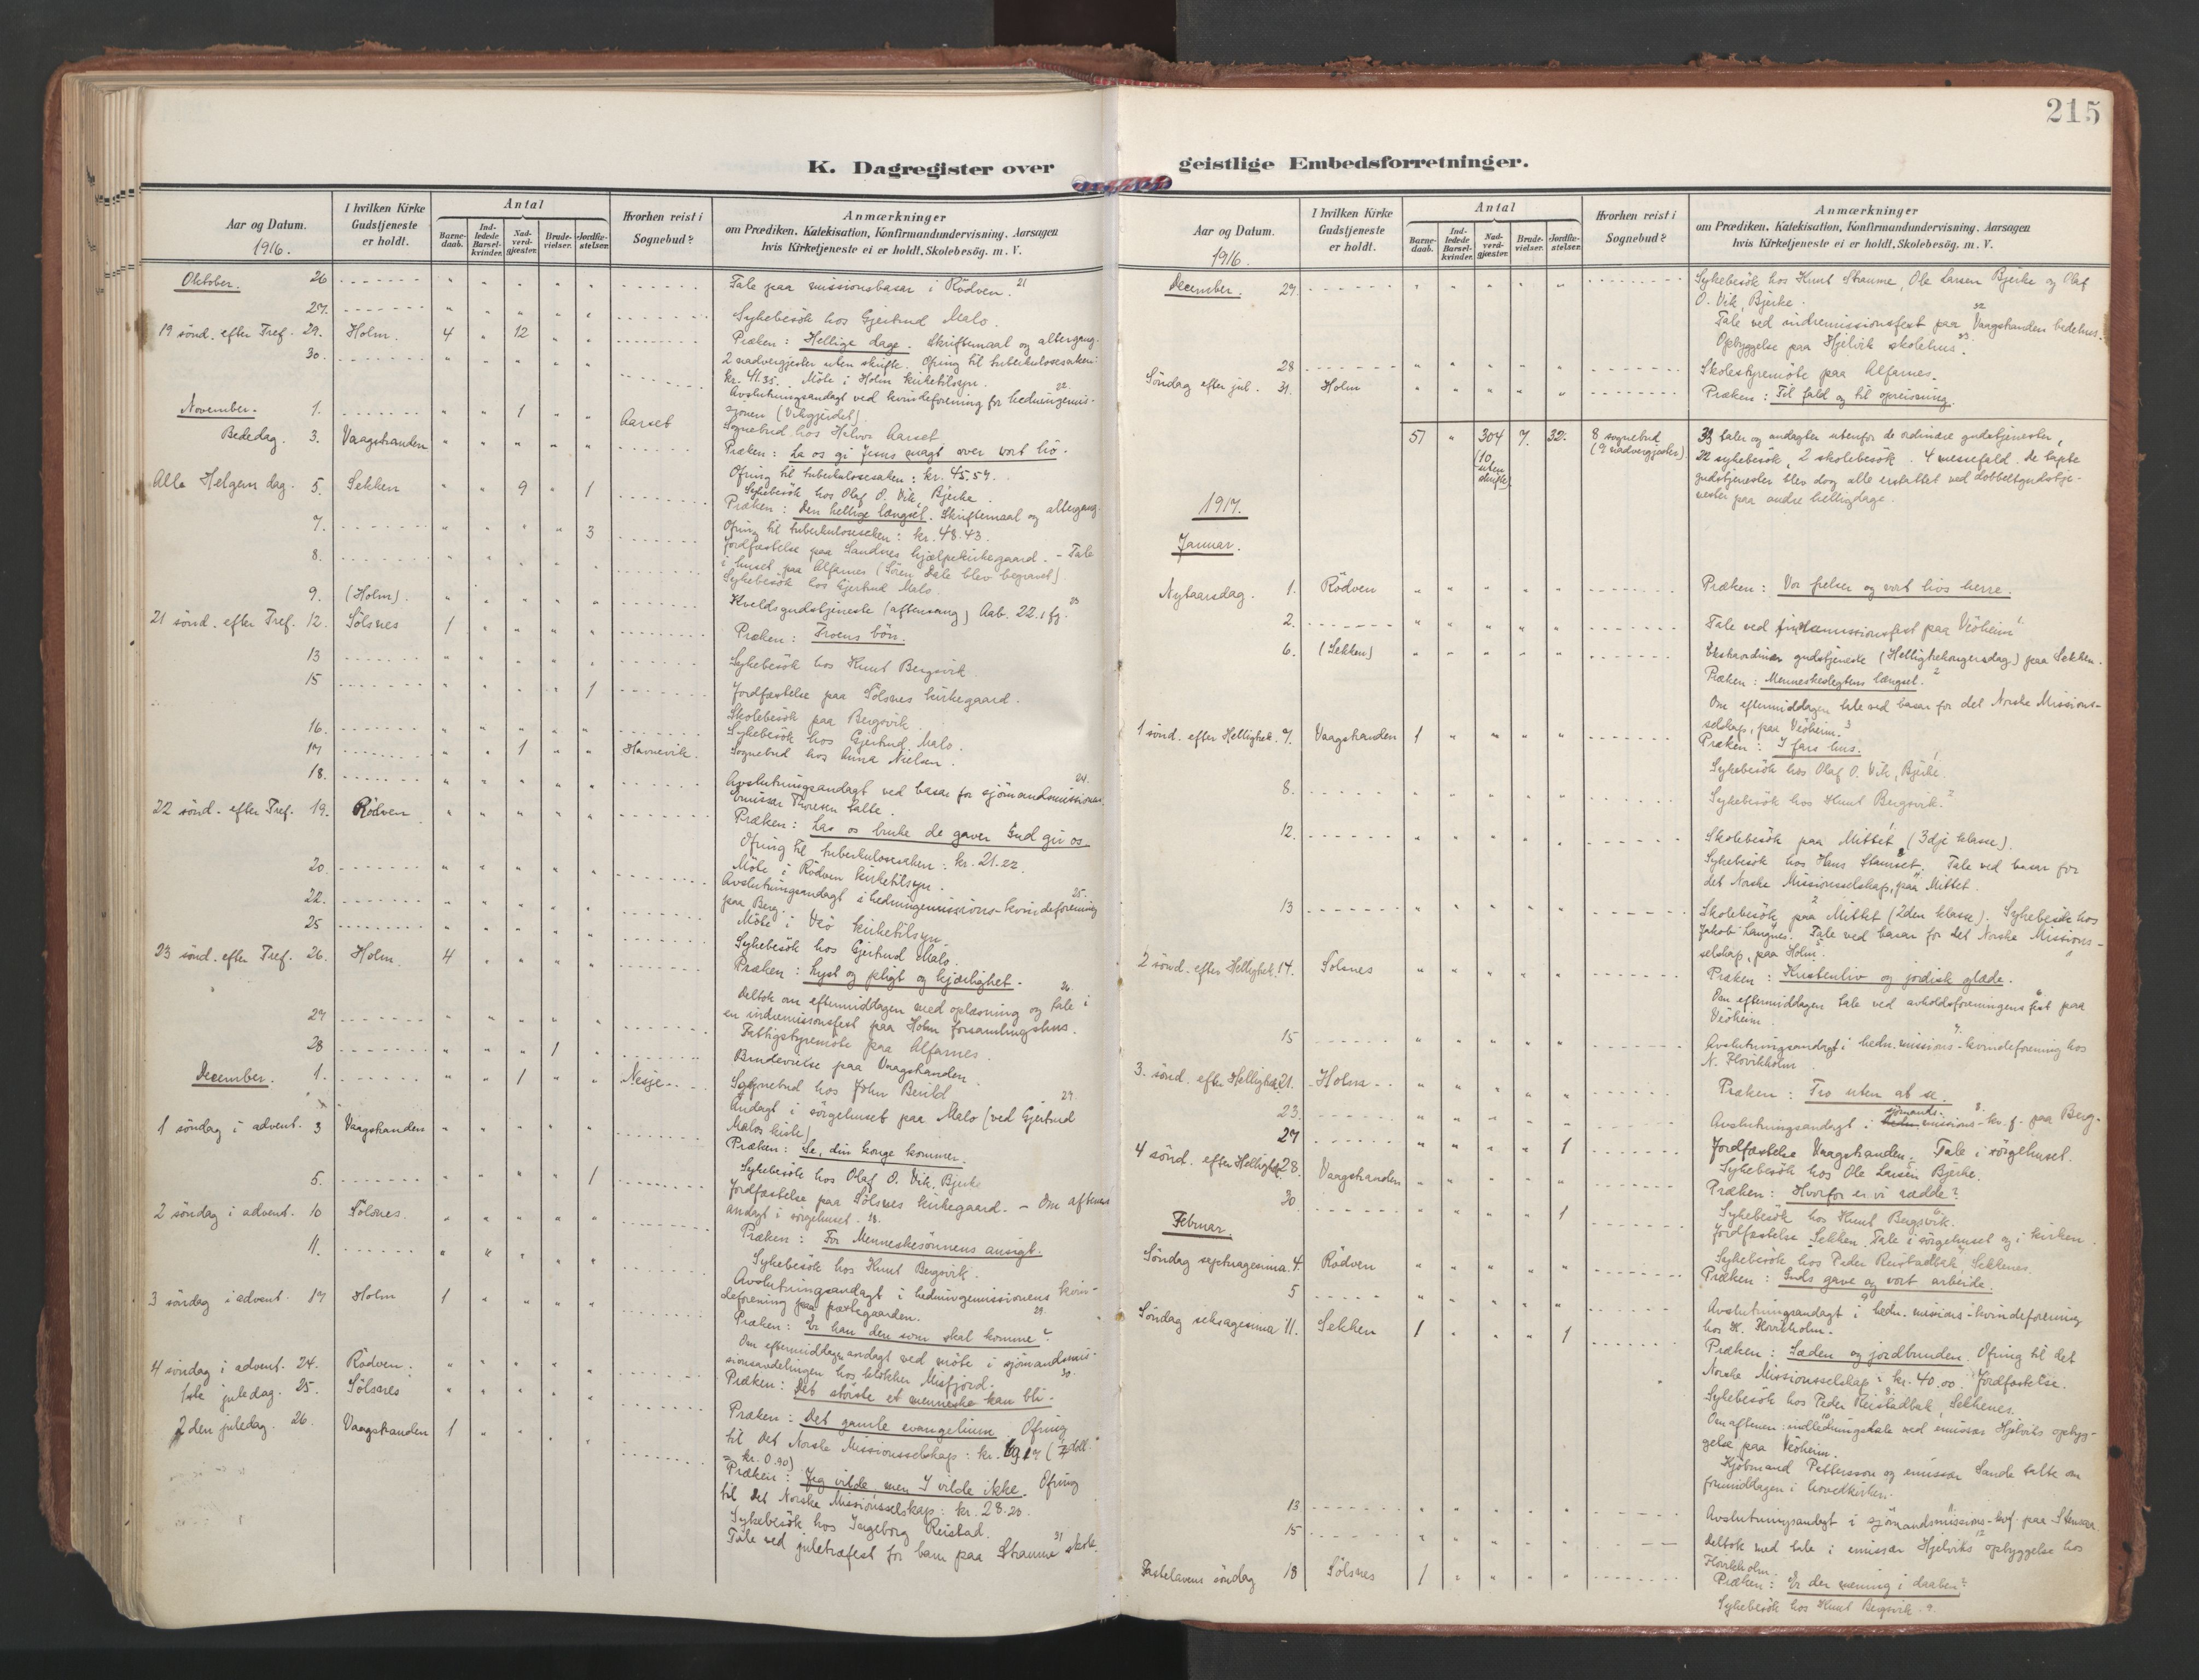 215
K. Dagregister over
Aar og Datum.
1916.
I hvilken Kirke
Gudstjeneste
er holdt.
Antal
Barne-
daab.
Ind-
ledede
Barsel-
kvinder.
Nad-
verd-
gjæster.
Brude-
vielser.
Jordfæ-
stelser.
Hvorhen reist i
Sognebud?
Anmærkninger
om Prædiken, Katekisation, Konfirmandundervisning, Aarsagen
hvis Kirketjeneste ei er holdt, Skolebesög. m. V.
Oktober. 26 Tale paa missionsbasar i Rödven. 21
27. Sykebesök hos Gjertrud Malo.
19 sönd. efter Tref. 29. Holm. 4 12 Præken: Hellige dage. Skriftemaal og altergang.
2 nadvergjester uten skrifte. Ofring til tuberkulosesaken:
kr. 41.35.
30. Möte i Holm kirketilsyn.
Avslutningsandagt ved kvindeforening for hedningemis- 22.
sjonen (Vikgjerdet)
November. 1. 1 Aarset Sognebud hos Halvor Aarset
Bededag. 3. Vaagstranden Præken: La os gi Jesus magt over vort liv.
Ofring til tuberkulosesaken: kr. 45.57.
Sykebesök hos Olaf O. Vik, Bjerke
Alle Helgens dag. 5. Sekken 9 1 Præken: Den hellige længsel. Skriftemaal og altergang.
Ofring til tuberkulosesaken: kr. 48.43.
7. 3 Jordfæstelse paa Sandnes hjælpekirkegaard. - Tale
i huset paa Alfarnes (Sören Dale blev begravet).
8. Sykebesök hos Gjertrud Malo.
9. (Holm). Kveldsgudstjeneste (aftensang) Aab. 22.1 fg. 23
21 sönd. efter Tref. 12. Sölsnes 1 Præken: Troens bön.
13 Sykebesök hos Knut Bergsvik
15 1 Jordfæstelse paa Sölsnes kirkegaard.
Skolebesök paa Bergsvik
16. Sykebesök hos Gjertrud Malo.
17 1 Havnevik. Sognebud hos Anna Nielsen.
18. Avslutningsandagt ved basar for sjömandsmissionen. 24.
Emissær Thoresen talte.
22 sönd. efter Tref. 19. Rödven Præken: Lar os bruke de gaver Gud gir os.
Ofring til tuberkulosesaken: kr. 21.22.
20. Möte i Rödven kirketilsyn.
22. Avslutningsandagt i hedningemissions-kvindeforening 25.
paa Berg.
25 Möte i Veö kirketilsyn.
Sykebesök hos Gjertrud Malo.
23 sönd. efter Tref. 26. Holm. 4 Præken: Lyst og pligt og kjærlighet.
Deltok om eftermiddagen med oplæsning og tale i 26.
en indremissionsfest paa Holm forsamlingshus.
27 Fattigstyremöte paa Alfarnes.
28 1 Brudevielse paa Vaagstranden.
December. 1. 1 Nesje Sognebud hos John Berild
Andagt i sörgehuset paa Malo (ved Gjertrud 27.
Malos kiste)
1 söndag i advent. 3 Vaagstranden Præken: Se, din konge kommer.
Sykebesök hos Olaf O. Vik, Bjerke
5. 1 Jordfæstelse paa Sölsnes kirkegaard. - Om aftenen
andagt i sörgehuset. 28.
2 söndag i advent. 10 Sölsnes. Præken: For Menneskesönnens ansigt.
Sykebesök hos Knut Bergsvik.
11. Avslutningsandagt i hedningemissionens kvin-
deforening paa prestegaarden. 29.
3 söndag i advent. 17 Holm 1 Præken: Er han den som skal komme?
Om eftermiddagen andagt ved möte i sjömandsmis-
sionsavdelingen hos klokker Misfjord. 30.
4 söndag i advent. 24. Rödven. Præken: Det störste et menneske kan bli.
1ste juledag. 25. Sölsnes Præken: Det gamle evangelium. Ofring
til Det Norske Missionsselskap: kr.
= kr. 0.90)
2den juledag. 26. Vaagstranden 1 Præken: Jeg vilde, men I vilde ikke. Ofring
til Det Norske Missionsselskap: kr. 28.20.
Sykebesök hos Ingeborg Reistad.
Tale ved juletræfest for barn paa Straume skole. 31
geistlige Embedsforretninger.
Aar og Datum.
1916.
I hvilken Kirke
Gudstjeneste
er holdt.
Antal
Barne-
daab.
Ind-
ledede
Barsel-
kvinder.
Nad-
verd-
gjæster.
Brude-
vielser.
Jordfæ-
stelser.
Hvorhen reist i
Sognebud?
Anmærkninger
om Prædiken, Katekisation, Konfirmandundervisning, Aarsagen
hvis Kirketjeneste ei er holdt, Skolebesög. m. V.
December. 27. Sykebesök hos Knut Straume, Ole Larsen Bjerke og Olaf
O. Vik, Bjerke.
Tale ved indremissionsfest paa Vaagstranden bedehus. 32
Opbyggelse paa Hjelvik skolehus. 33.
28 Skolestyremöte paa Alfarnes.
Söndag efter jul. 31. Holm Præken: Til fald og til opreisning.
51 304 7. 32. 8 sognebud 33 taler og andagter utenfor de ordinære gudstjenester,
(10 uten skrifte) (9 nadvergjester) 22 sykebesök, 2 skolebesök. 4 messefald. de tapte
gudstjenester blev dog alle erstattet ved dobbeltgudstje-
nester paa andre helligdage.
1917.
Januar.
Nytaarsdag. 1. Rödven Præken: Vor frelser og vort livs herre.
2. Tale ved indremissionsfest paa Veöheim 1
6. (Sekken) Ekstraordinær gudstjeneste (Helligtrekongersdag) paa Sekken.
Præken: Menneskeslegtens længsel. 2
Om eftermiddagen tale ved basar for det Norske Missions-
selskap, paa Veöheim. 3
1 sönd. efter Helligtrek. 7. Vaagstranden 1 Præken: I fars hus.
Sykebesök hos Olaf O. Vik, Bjerke. 1
8. Sykebesök hos Knut Bergsvik. 2
12. Skolebesök paa Mittet (3dje klasse). 1
Sykebesök hos Hans Stamset. Tale ved basar for
det Norske Missionsselskap, paa Mittet.
13 Skolebesök paa Mittet (2den klasse). Sykebesök hos
Jakob Langnes. Tale ved basar for det Norske Missions-
selskap, paa Holm. 5
2 sönd. efter Helligtrek. 14. Sölsnes Præken: Kristenliv og jordisk glæde.
Om eftermiddagen tale ved avholdsforeningens fest paa 6
Veöheim.
15 Avslutningsandagt i hedn. missions-kvindeforening hos 7.
N. Flovikholm
3. sönd. efter Helligtrek. 21. Holm Præken: Tro uten at se.
23. Avslutningsandagt i hedn. sjömands-missions-kv.f. paa Berg. 8.
27 1 Jordfæstelse Vaagstranden. Tale i sörgehuset.
Sykebesök hos Ole Larsen Bjerke.
4 sönd. efter Helligtrek. 28. Vaagstranden Præken: Hvorfor er vi rædde?
Sykebesök hos Knut Bergsvik. 6
30. 1 Jordfæstelse Sekken. Tale i sörgehuset og i kirken.
Sykebesök hos Peder Reistadbak, Sekkenes.
Februar.
Söndag septuagesima. 4. Rödven Præken: Guds gave og vort arbeide.
5 Avslutningsandagt i hedn. missions-kvindeforening 9
hos K. Hovikholm.
Söndag seksagesima 11. Sekken 1 1 Præken: Sæden og jordbunden. Ofring til det
Norske Missionsselskap: kr. 40.00. Jordfæstelse.
Sykebesök hos Peder Reistadbak, Sekkenes.
Om aftenen indledningstale ved emissær Hjelviks opbyg- 10
gelse paa Veöheim.
Kjöbmand Pettersson og emissær Sande talte om
formiddagen i hovedkirken.
13 Avslutningsandagt i sjömandsmissions-kvf. paa Stensær. 11
15 Deltok med tale i emissær Hjelviks opbyggelse hos 12
Hovikholm.
Fastelavens söndag 18 Sölsnes 1 Præken: Er der mening i daaben?
Sykebesök hos Knut Bergsvik. 9.